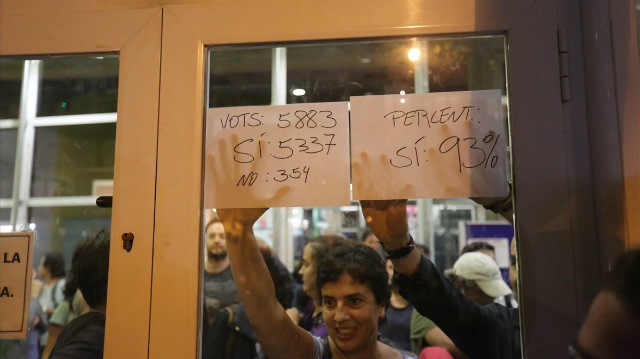 VOTS: 5883
SÍ: 5337
NO: 354
PERCENT.:
SÍ: 93%
LA
A.